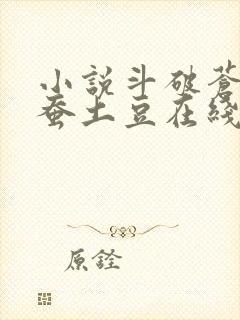 小說斗破蒼
蚕土豆在綫
原銓